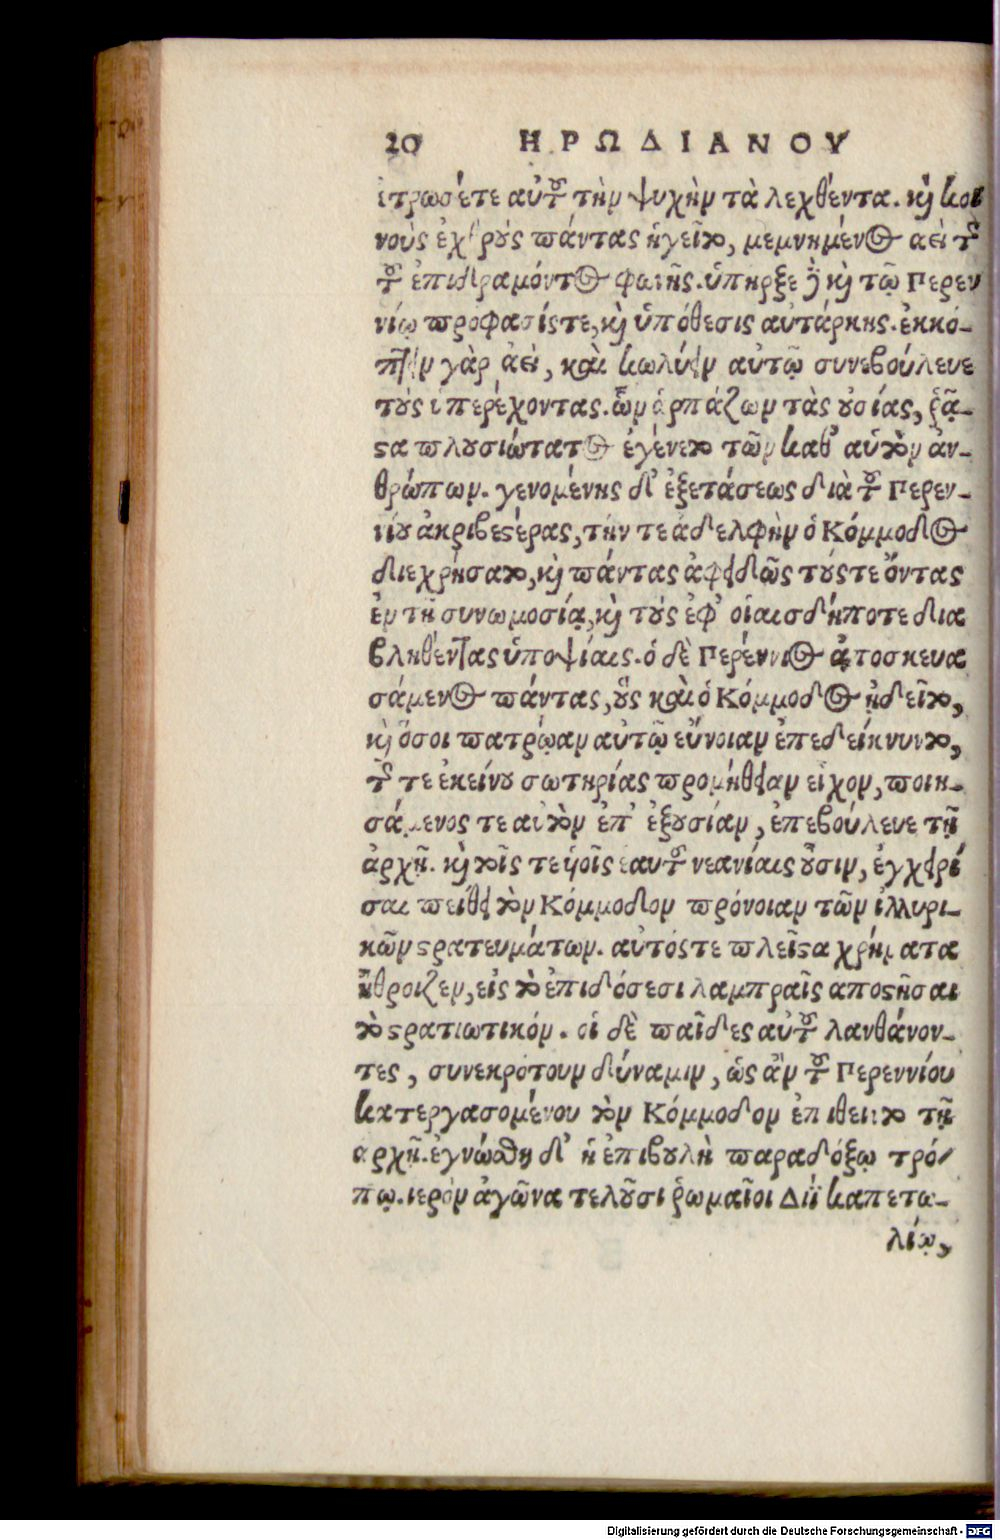 20 ΗΡΩΔΙΑΝΟΥ
ἔτρωσέτε αὐτοῦ τὴν ψυχὴν τὰ λεχθέντα. καὶ κοι
νοὺς ἐχθροὺς πάντας ἡγεῖτο, μεμνημένος αεὶ τῆς
τοῦ ἐπιδραμόντος φωνῆς. ὑπηρξε δὲ καὶ τῷ Περεν
νίῳ πρόφασίςτε, καὶ ὑπόθεσις αυτάρκης. ἐκκό-
πτειν γὰρ ἀεὶ, καὶ κωλύειν αὐτῷ συνεβούλευε
τοὺς ὑπερέχοντας. ὧν ἁρπάζων τὰς οὐσίας, ῥᾷ-
στα πλουσιώτατος ἐγένετο τῶν καθ' αὑτὸν ἀν-
θρώπων. γενομένης δ' ἐξετάσεως διὰ τοῦ Περεν-
νίου ἀκριβεστέρας, τήν τε ἀδελφὴν ὁ Κόμμοδος
διεχρήσατο, καὶ πάντας ἀφειδῶς τούςτε ὄντας
ἐν τῇ συνωμοσίᾳ, καὶ τοὺς ἐφ' οἵαισδήποτε δια
βληθέντας ὑποψίαις. ὁ δὲ Περέννιος ἀποσκευα
σάμενος πάντας, οὓς καὶ ὁ Κόμμοδος ᾐδεῖτο,
καὶ ὅσοι πατρῴαν αὐτῷ εὔνοιαν ἐπεδείκνυντο,
τῆς τε ἐκείνου σωτηρίας προμήθειαν εἶχον, ποιη-
σάμενος τε αὐτὸν ἐπ' ἐξουσίαν, ἐπεβούλευε τῇ
ἀρχῇ. καὶ τοῖς τε ὑιοῖς ἑαυτοῦ νεανίαις οὖσιν, ἐγχειρί
σαι πείθει τὸν Κόμμοδον πρόνοιαν τῶν ἰλλυρι-
κῶν στρατευμάτων. αὐτόςτε πλεῖστα χρήματα
ἤθροιζεν, εἰς τὸ ἐπιδόσεσι λαμπραῖς αποστῆσαι
τὸ στρατιωτικόν. οἱ δὲ παῖδες αὐτοῦ λανθάνον-
τες, συνεκρότουν δύναμιν, ὡς ἂν τοῦ Περεννίου
κατεργασομένου τὸν Κόμμοδον ἐπιθεῖντο τῇ
αρχῇ. ἐγνώσθη δ' ἡ ἐπιβουλὴ παραδόξῳ τρό-
πῳ. ιερὸν ἀγῶνα τελοῦσι ῥωμαῖοι Διῒ καπετω-
λίῳ,
Digitalisierung gefördert durch die Deutsche Forschungsgemeinschaft - DFG